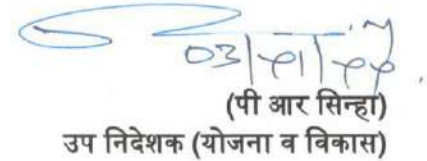 (पी आर सिन्हा)
उप निदेशक (योजना व विकास)